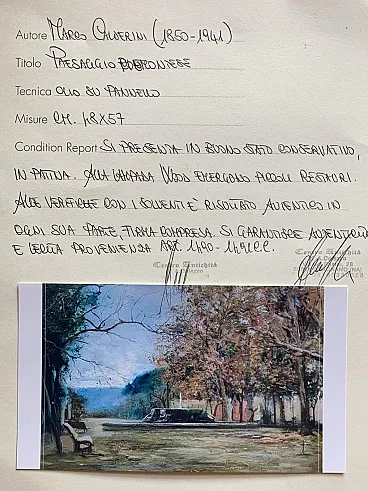 Autore Marco Calderini (1850-1941)
Titolo Paesaggio
Tecnica olio su pannello
Misure cm. 48x57
Condition Report Si presenta in buono stato conservativo,
in patina. Alla lampada Wood emergono piccoli restauri.
Alle verifiche con i solventi è risultato autentico in
ogni sua parte, firma compresa. Si garantisce autenticità
e lecita provenienza art. 1490-1491 c.c.
Centro Antichità